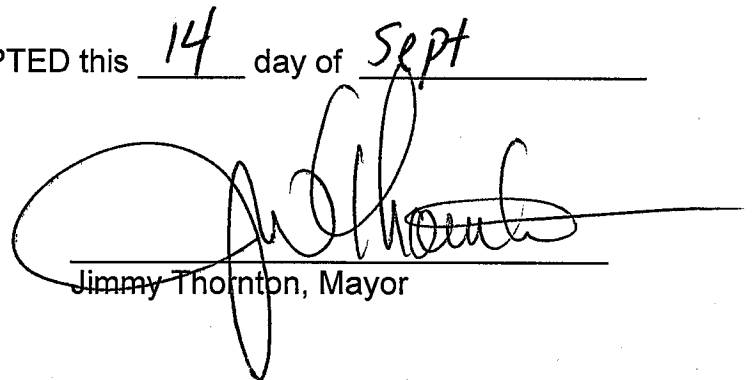 PTED this 14 day of Sept
Jimmy Thornton, Mayor